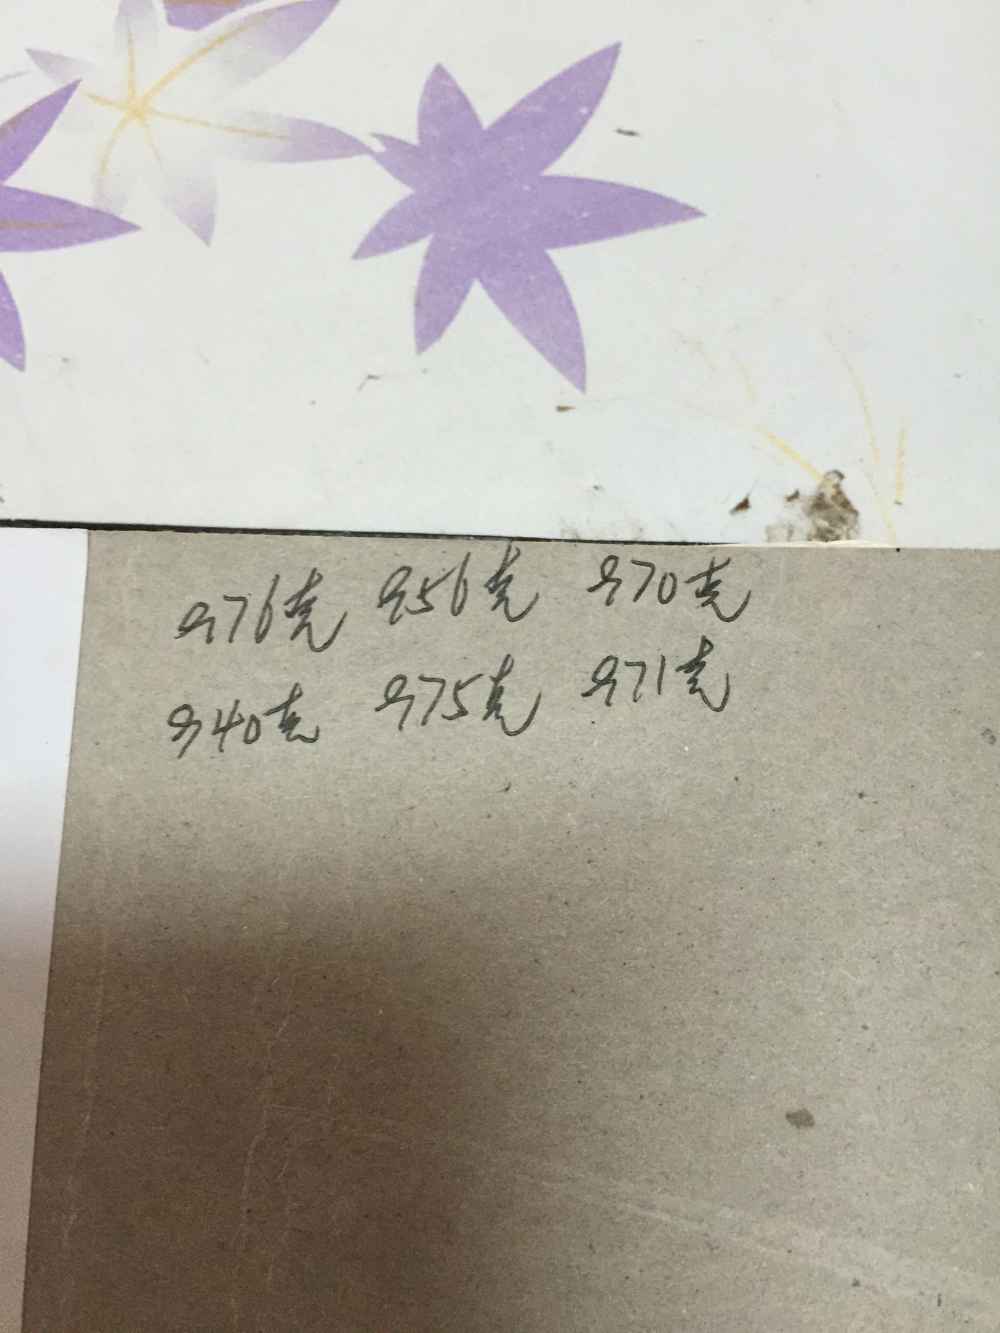 976克 956克 970克
940克 975克 971克